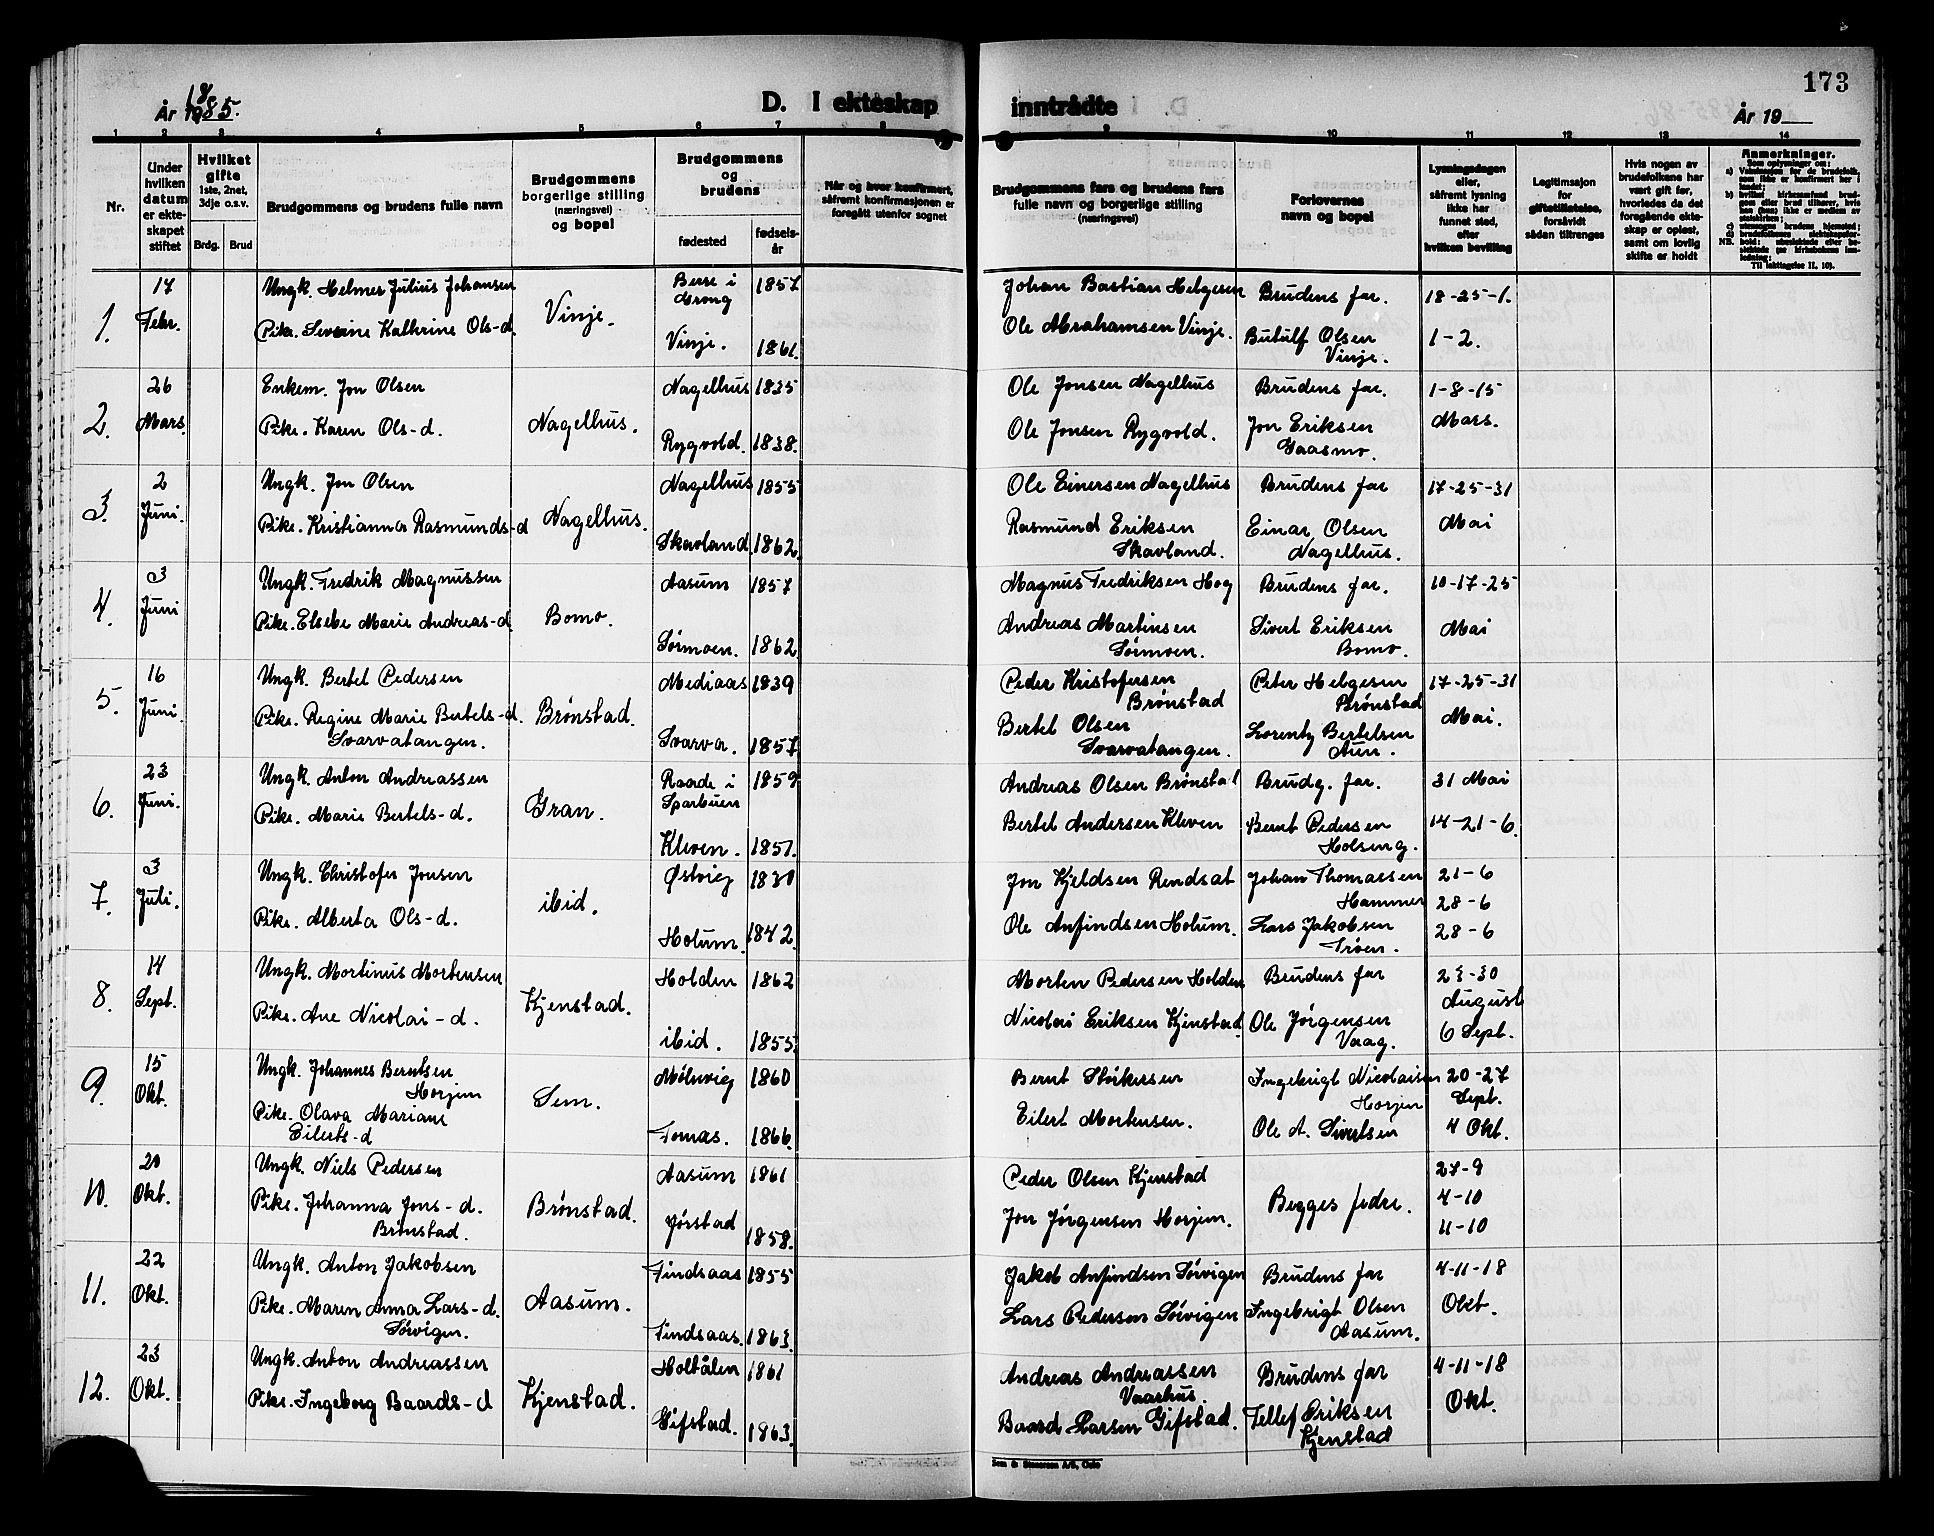 173
År 1885.
D. I ekteskap inntrådte
År 19
1 2 3 4 5 6 7 8 9 10 11 12 13 14
Nr.
Under hvilken datum er ekteskapet stiftet
Hvilket gifte 1ste, 2net, 3dje o.s.v.
Brdg. Brud
Brudgommens og brudens fulle navn
Brudgommens borgerlige stilling (næringsvei) og bopel
Brudgommens og brudens
fødested
fødselsår
Når og hvor konfirmert, såfremt konfirmasjonen er foregått utenfor sognet
Brudgommens fars og brudens fars fulle navn og borgerlige stilling (næringsvei)
Forlovernes navn og bopel
Lysningsdagen eller, såfremt lysning ikke har funnet sted, efter hvilken bevilling
Legitimasjon for giftetillatelse, forsåvidt sådan tiltrenges
Hvis nogen av brudefolkene har vært gift før, hvorledes da det foregående ekteskap er opløst, samt om lovlig skifte er holdt
Anmerkninger.
Som oplysninger om:
1. 17 Febr. Ungk. Helmer Julius Johansen Vinje. 1857 Johan Bastian Helgesen Brudens far. 18-25-1.
Pike. Severine Kathrine Ols-d. Vinje. 1861. Ole Abrahamsen Vinje. Butulf Olsen Vinje. 1-2.
2. 26 Mars. Enkem. Jon Olsen Nagelhus. Nagelhus 1835 Ole Jonsen Nagelhus Brudens far. 1-8-15
Pike. Karen Ols-d. Rygvold. 1838. Ole Jonsen Rygvold. Jon Eriksen Gaasmo. Mars.
3. 2 Juni. Ungk. Jon Olsen Nagelhus. Nagelhus 1855 Ole Einersen Nagelhus Brudens far 17-25-31
Pike. Kristianna Rasmunds-d Skavland 1862. Rasmund Eriksen Skavland. Einar Olsen Nagelhus. Mai
4. 3 Juni Ungk. Fredrik Magnussen Bomo. Aasum 1857 Magnus Fredriksen Hog Brudens far. 10-17-25
Pike. Elsebe Marie Andreas-d. Sørmoen. 1862 Andreas Martinsen Sørmoen. Sivert Eriksen Bomo. Mai
5. 16 Juni. Ungk. Bertel Pedersen Brønstad. Mediaas 1839 Peder Kristofersen Brønstad Peter Helgesen Brønstad 17-25-31
Pike. Regine Marie Bertels-d. Svarvatangen. Svarva. 1857 Bertel Olsen Svarvatangen. Lorentz Bertelsen Aun. Mai.
6. 23 Juni. Ungk. Anton Andreassen Gran. Raade i Sparbuen 1859 Andreas Olsen Brønstad Brudg. far. 31 Mai
Pike. Marie Bertels-d. Kleven. 1851. Bertel Andersen Kleven Bernt Pedersen Holseng. 14-21-6.
7. 3 Juli. Ungk. Christofer Jonsen ibid. Østvig 1830 Jon Kjeldsen Rendsat Johan Thomassen Hammer 21-6 28-6
Pike. Alberta Ols-d. Holum. 1842. Ole Anfindsen Holum. Lars Jakobsen Trøen. 28-6
8. 14 Sept. Ungk. Mortinus Mortensen Kjenstad. Holden 1862 Morten Pedersen Holden Brudens far 23-30 August
Pike. Ane Nicolai-d. ibid. 1855. Nicolai Eriksen Kjenstad Ole Jørgensen Vaag. 6 Sept.
9. 15 Okt. Ungk. Johannes Berntsen Horjem Sem. Mølnvig 1860 Bernt Størkersen Ingebrigt Nicolaisen Horjem 20-27 Sept.
Pike. Olava Mariane Eilerts-d Fornæs. 1866. Eilert Mortensen. Ole A. Sivertsen 4 Okt.
10. 20 Okt. Ungk. Niels Pedersen Brønstad. Aasum 1861 Peder Olsen Kjenstad Begges fedre. 27-9
Pike. Johanna Jons-d. Brønstad. Jørstad 1858. Jon Jørgensen Horjem. 4-10 11-10
11. 22 Okt. Ungk. Anton Jakobsen Aasum. Findsaas 1855 Jakob Anfindsen Sørvigen Brudens far 4-11-18
Pike. Maren Anna Lars-d. Sørvigen. Findsaas. 1863. Lars Pederson Sørvigen Ingebrigt Olsen Aasum. Okt.
12. 23 Okt. Ungk. Anton Andreassen Kjenstad. Holtålen 1861 Andreas Andreassen Vaarhus. Brudens far 4-11-18
Pike. Ingeborg Baards-d Gifstad. 1863. Baard Larsen Gifstad. Tellef Eriksen Kjenstad Okt.